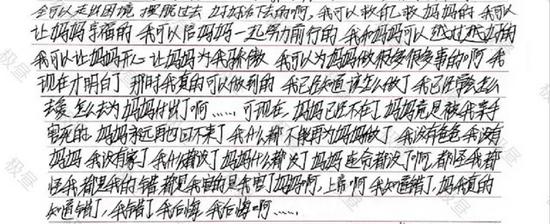 全可以走出困境 摆脱过去 好好活下去的啊,我可以救自己救妈妈的 我可以
让妈妈幸福的 我可以陪妈妈一起努力前行的 我和妈妈可以越过越好的
我可以让妈妈开心 让妈妈为我骄傲 我可以为妈妈做很多很多事的啊 我
现在才明白了 那时我真的可以做到的 我已经知道该怎么做了 我已经学会怎么
去爱 怎么去为妈妈付出了啊……可现在,妈妈已经不在了 妈妈竟是被我亲手
害死的 妈妈永远再也回不来了 我什么都不能再为妈妈做了 我没有爸爸 我没有
妈妈 我没有家了 我什么都没了 妈妈什么都没了 妈妈连命都没了啊,都怪我 都
怪我 都是我的错 都是我害的 是我害了妈妈啊,上帝啊 我知道错了,妈 我真的
知道错了,我错了 我后悔 我后悔啊……
极昼
极昼
极昼
极昼